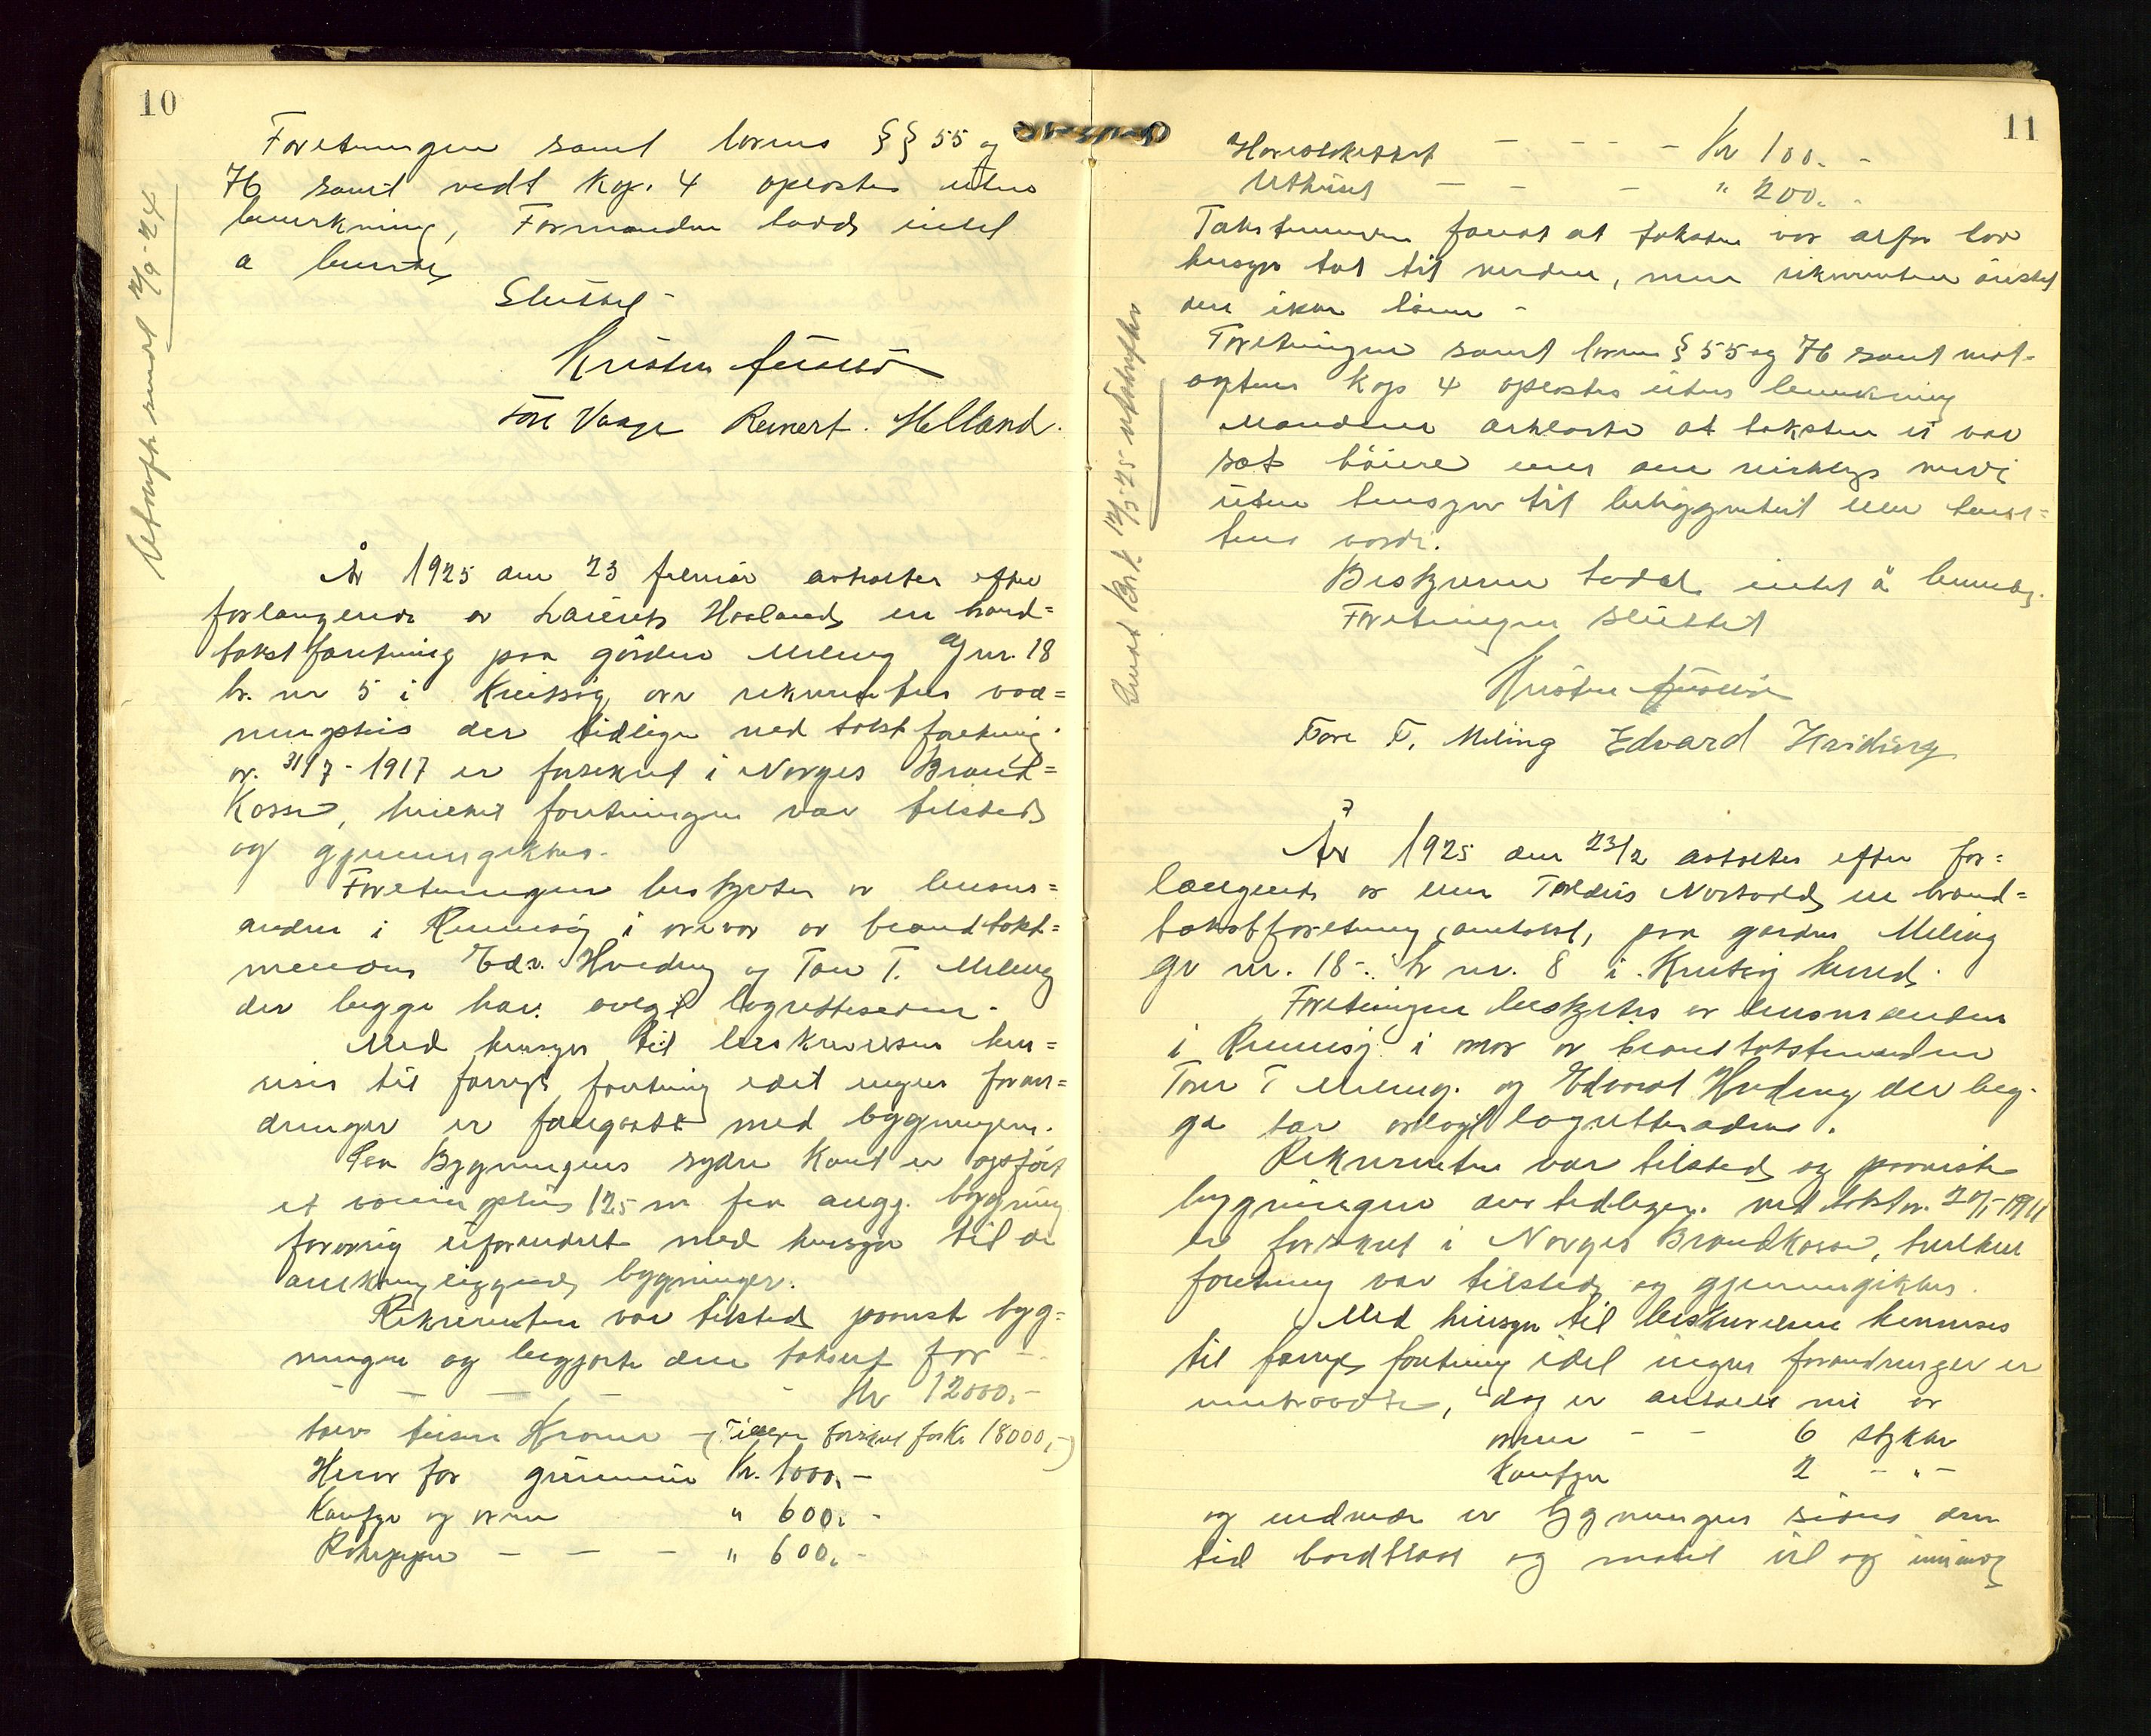 10
Foretningen samt lovens §§ 55 og
76 samt vedt Kap. 4 oplæstes uten
bemerkning, Formanden hadde intet
a bemerke
Sluttet -
Utskrift sendt 2/9-24
Tore Vaage Reinert. Helland.
År 1925 den 23 februar avholdtes efter
forlangende av Laurits Haaland en brand=
takstforretning paa gården Meling Gnr. 18
br. nr 5 i over rekvirentens vaa=
ningshus der tidligere ved takstforretning
av. 31/7-1917 er forsikret i Norges Brand=
Kasse, hvilket forretningen var tilstede
og gjennemgikkes.
Forretningen bestyrtes av lensm=
anden i Rennesøy i nærvær av brandtakst=
mendene Edv. Hviding og Tore T. Meling
der begge har avlagt lagretteseden.
Med hensyn til beskrivelsen hen=
vises til forrige forretning idet ingen foran=
dringer er foregaatt med bygningen.
Paa Bygningens søndre Kant er opført
et vaaningshus 12,5 m fra angj. bygning
forøvrig uforandret med hensyn til de
omkringliggende bygninger.
Rekvirenten var tilstede paaviste byg=
ningen og begjærte den taksert for -
- - - - - Kr 12000.-
tolv tusen Kroner - (Tidligere forsikret for Kr 18000,-)
Herav for grunmur Kr. 1000.-
Komfyr og ovne " 600.-
Rørpiper - - - " 600.-
11
- - - - Kr 100. -
Uthuset - - - " 200. -
Takstmennene fandt at taksten var altfor lav
hensyn tat til verdien, men rekvirenten ønsket
den ikke høiere -
Forretningen samt lovens § 55 og 76 samt vedt-
ægtens Kap 4 oplæstes uten bemerkning
Mændene erklærte at taksten ei var
sat høiere enn den virkelige verdi
uten hensyn til beliggenhet eller tom=
tens værdi.
Bestyreren hadde intet å bemerke.
Forretningen sluttet
Tore T. Meling Edvard Hviding
År 1925 den 23/2 avholtes efter for=
langende av enke Nortvedt en brand=
takstforretning, omtakst, paa garden Meling
gr nr. 18. br nr. 8 i herred.
Forretningen bestyrtes av lensmanden
i Rennesøy i nærvær av brandtakstmændene
Tore T Meling. og Edvard Hviding der beg-
ge har avlagt lagretteseden.
Rekvirenten var tilstede og paaviste
bygningen der tidligere. ved takst av.
er forsikret i Norges Brandkasse, hvilken
forretning var tilstede og gjennemgikkes.
Med hensyn til beskrivelsen henvises
til forrige forretning idet ingen forandringer er
dog er antallet nu av
ovne - - 6 stykker
Komfyr 2 - " -
og endvidere er bygningen siden den
tid bordklædt og malet ut og innvendig